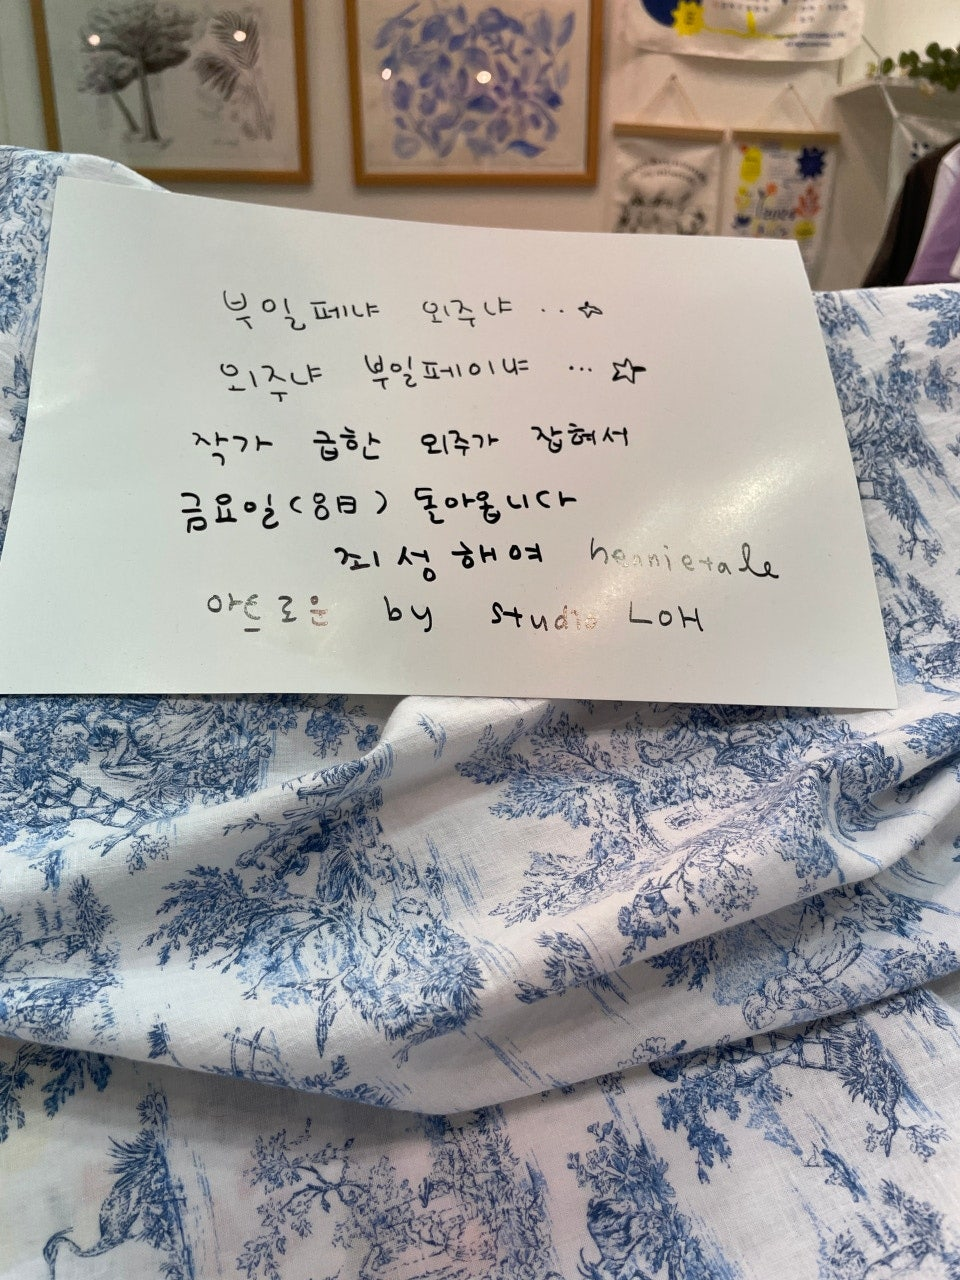 부일페냐 외주냐 ..☆
외주냐 부일페이냐 ...☆
작가 급한 외주가 잡혀서
금요일(8日) 돌아옵니다
죄성해여 hennietale
아트로운 by studio LOH